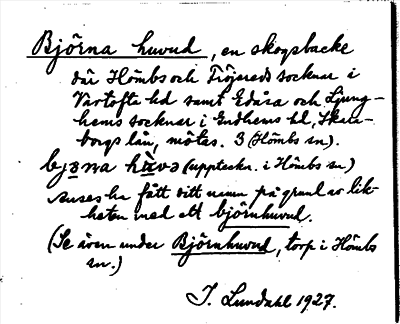 Björna huvud, en skogsbacke
där Hömbs och Fröjereds socknar i
Vartofta hd samt Edåsa och Ljung-
hems socknar i Gudhems hd, Skara-
borgs län, mötas. 3 (Hömbs sn).
bjɔna hùvə (uppteckn. i Hömbs sn)
anses ha fått ditt namn på grund av lik-
heten med ett björnhuvud.
(Se även under Björnhuvud, torp i Hömbs
sn.)
I. Lundahl 1927.